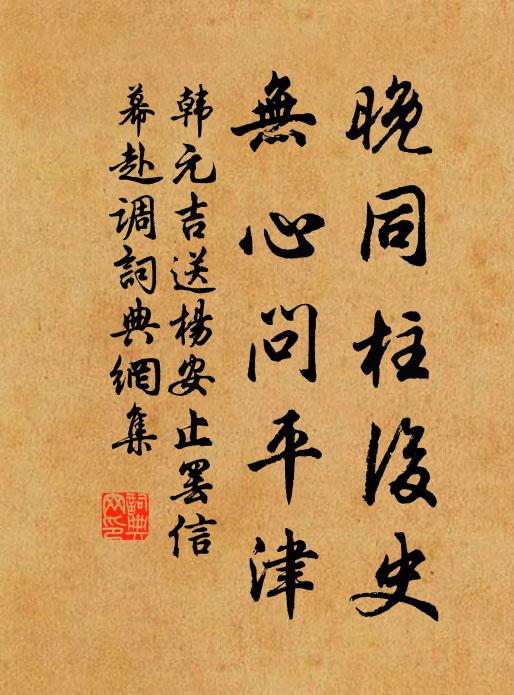 晚同柱後史
無心問平津
韩元吉送楊安止罢信
幕赴调詞典網集
詞典
网印